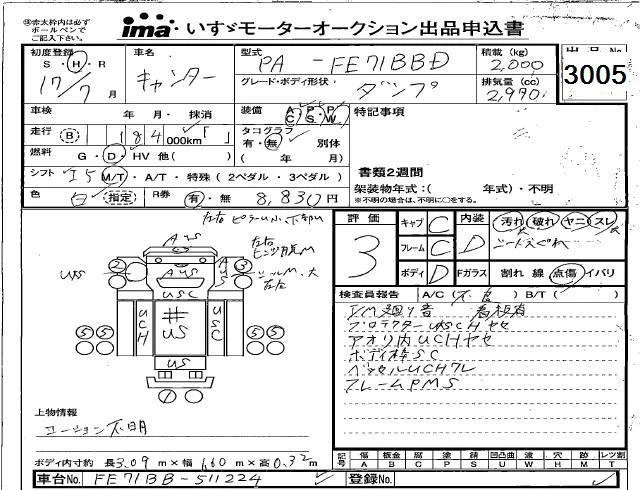 ※赤太枠内は必ず
ボールペンで
ご記入下さい。
ima いすゞモーターオークション出品申込書
初度登録 車名 型式 積載 (kg) 出品No
S・H・R キャンター PA - FE71BBD 2,000 3005
17/7月 グレード・ボディ形状 ダンプ 排気量 (cc) 2,990
車検 年 月・ 抹消 装備 A/C P/S P/W 特記事項
走行 B 184 000km「 」 タコグラフ 有・無 別体
燃料 G・D・HV 他( ) ( 年 月) 書類2週間
シフト I5 M/T・A/T・特殊 ( 2ペダル ・ 3ペダル ) 架装物年式:( 年式)・不明
色 白 指定 R券 有・無 8,830円 ※不明の場合は、不明に○をする。
左右ピラーU小
評価 3
キャブ C 内装 D 汚れ 破れ ヤニ スレ
フレーム C
ボディ D Fガラス 割れ 線 点傷 イバリ
AUS
左右
2 3
AUS
USC
UCH # US USC
5 5 5 5
US
検査員報告 A/C(不良) B/T( )
T/M廻り音 看板有
プロテクターUSCHヤセ
アオリ内UCHヤセ
ボディ枠SC
ベッセルUCHワレ
フレームPMS
上物情報
コーション不明
ボディ内寸約 長3.09m×幅1.60m×高0.32m
記号 傷 板金 腐 塗 錆 凹凸曲 波 穴 跡 レンズ割
A B C P S U W H M T
車台No. FE71BB-511224 登録No.